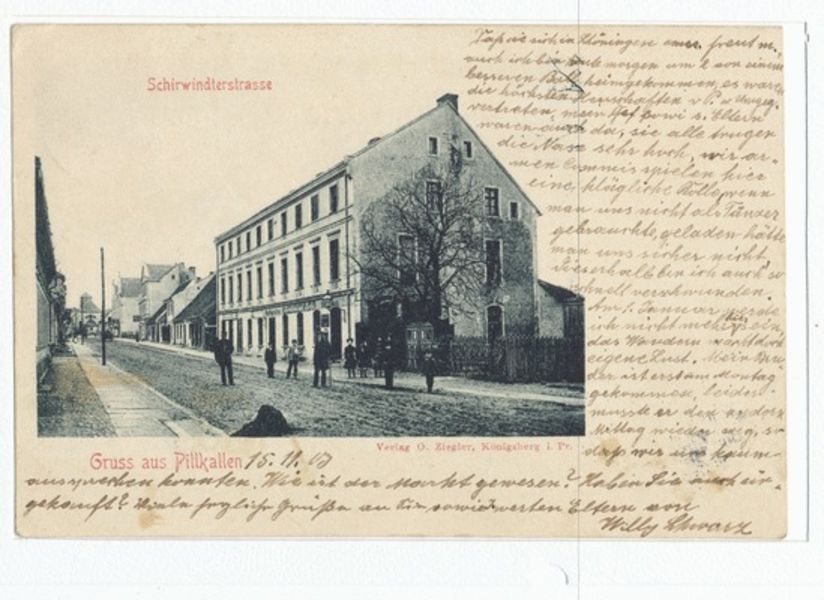 Schirwindterstrasse
Daß sie sich in Thöningen amüs. freut m.
auch ich bin heute morgen um 2 von einem
besseren Ball heimgekommen, es waren
die höchsten Herrschaften v P. u Umgeg.
vertreten, mein Chef sowi s. Eltern
waren auch da, sie alle trugen
die Nase sehr hoch, wir ar-
men Commis spielen hier
eine klägliche Rolle, wenn
man uns nicht als Tänzer
gebrauchte, geladen hätte
man uns sicher nicht
Dieserhalb bin ich auch so
schnell verschwunden.
Am 1. Januar werde
ich nicht mehr hier sein,
das Wandern
eigene Lust. Mein Bru
der ist erst am Montag
gekommen, leider
musste er den andern
Mittag wieder weg, so
daß wir uns kaum
Verlag O. Ziegler, Königsberg i. Pr.
Gruss aus Pillkallen 15. 11. 03
aussprechen konnten. Wie ist der Markt gewesen? Haben Sie auch ein-
gekauft? Viele frgliche Grüße an Sie sowie werten Eltern von
Willy Schwarz